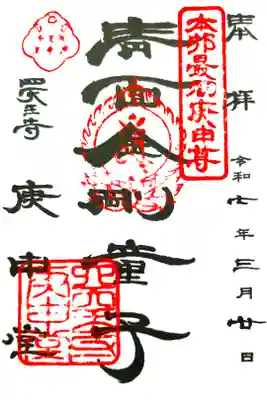 奉拝
令和七年三月廿日
本邦最初庚申尊
青面金剛童子
四天王寺
庚申堂